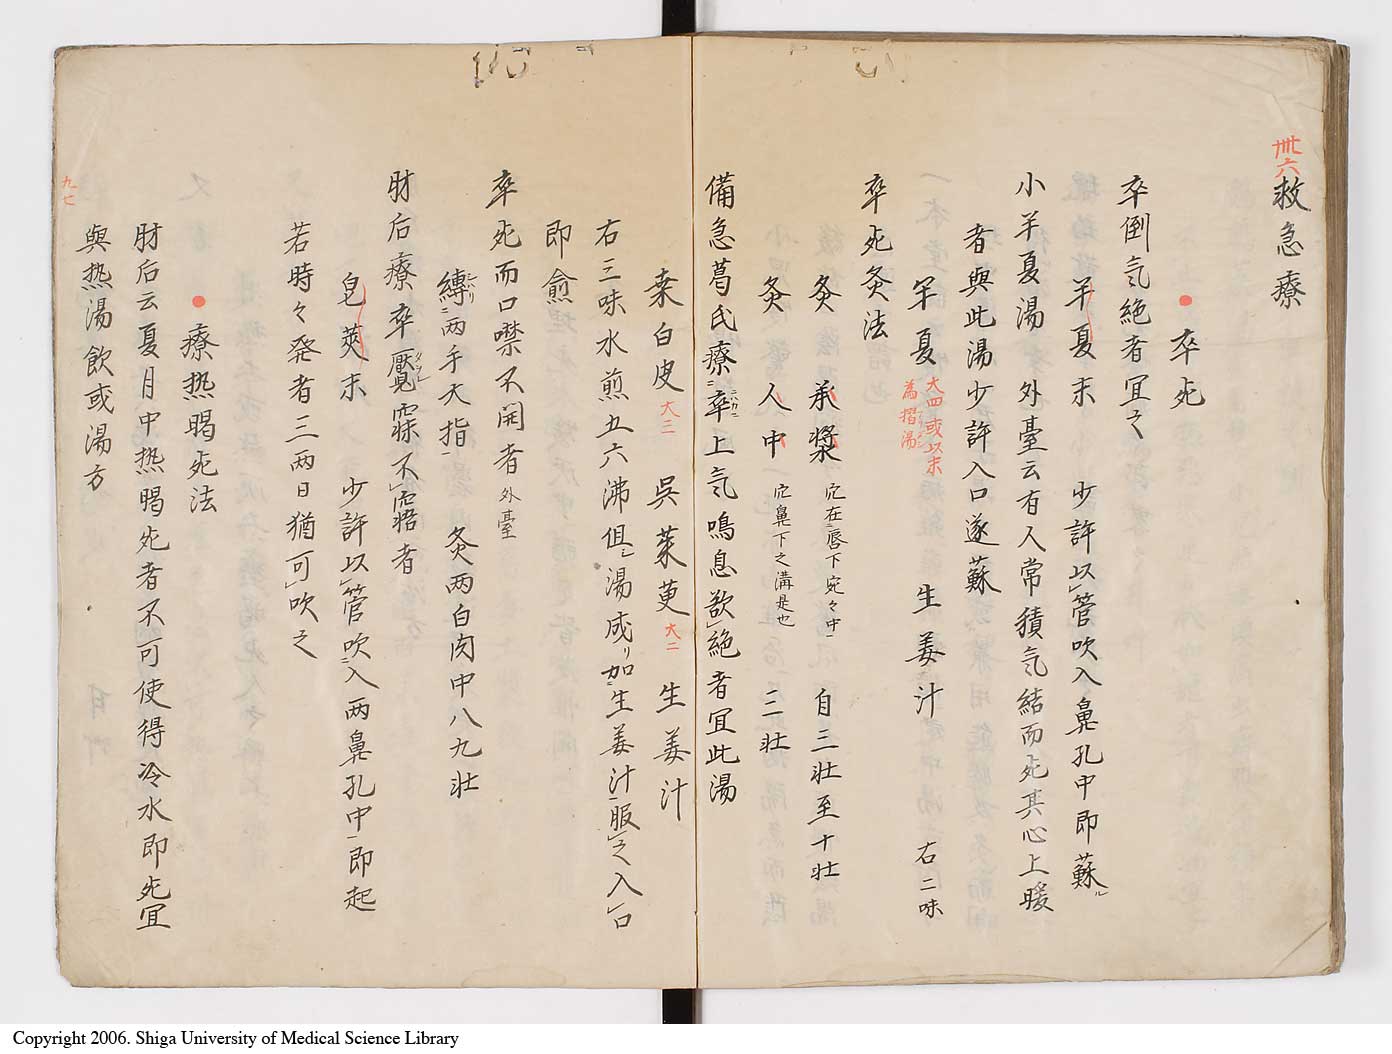 卅六救急療
卒死
卒倒気絶者宜之
半夏末 少許以管吹入鼻孔中即蘇
小半夏湯 外臺云有人常積気結而死其心上暖
者與此湯少許入口遂蘇
半夏 大四或以末為摺湯 生姜汁 右二味
卒死灸法
灸 承漿 穴在唇下宛々中 自三壮至十壮
灸 人中 穴鼻下之溝是也 三壮
備急葛氏療卒上気鳴息欲絶者冝此湯
桒白皮 大三 呉茱萸 大二 生姜汁
右三味水煎五六沸但湯成加生姜汁服之入口
即愈
卒死而口噤不開者 外臺
縛両手大指 灸両白肉中八九壮
肘后療卒魘寐不寤者
皂莢末 少許以管吹入両鼻孔中即起
若時々発者三両日猶可吹之
療热暍死法
肘后云夏月中热暍死者不可使得冷水即死冝
與热湯飲或湯方
九七
Copyright 2006. Shiga University of Medical Science Library